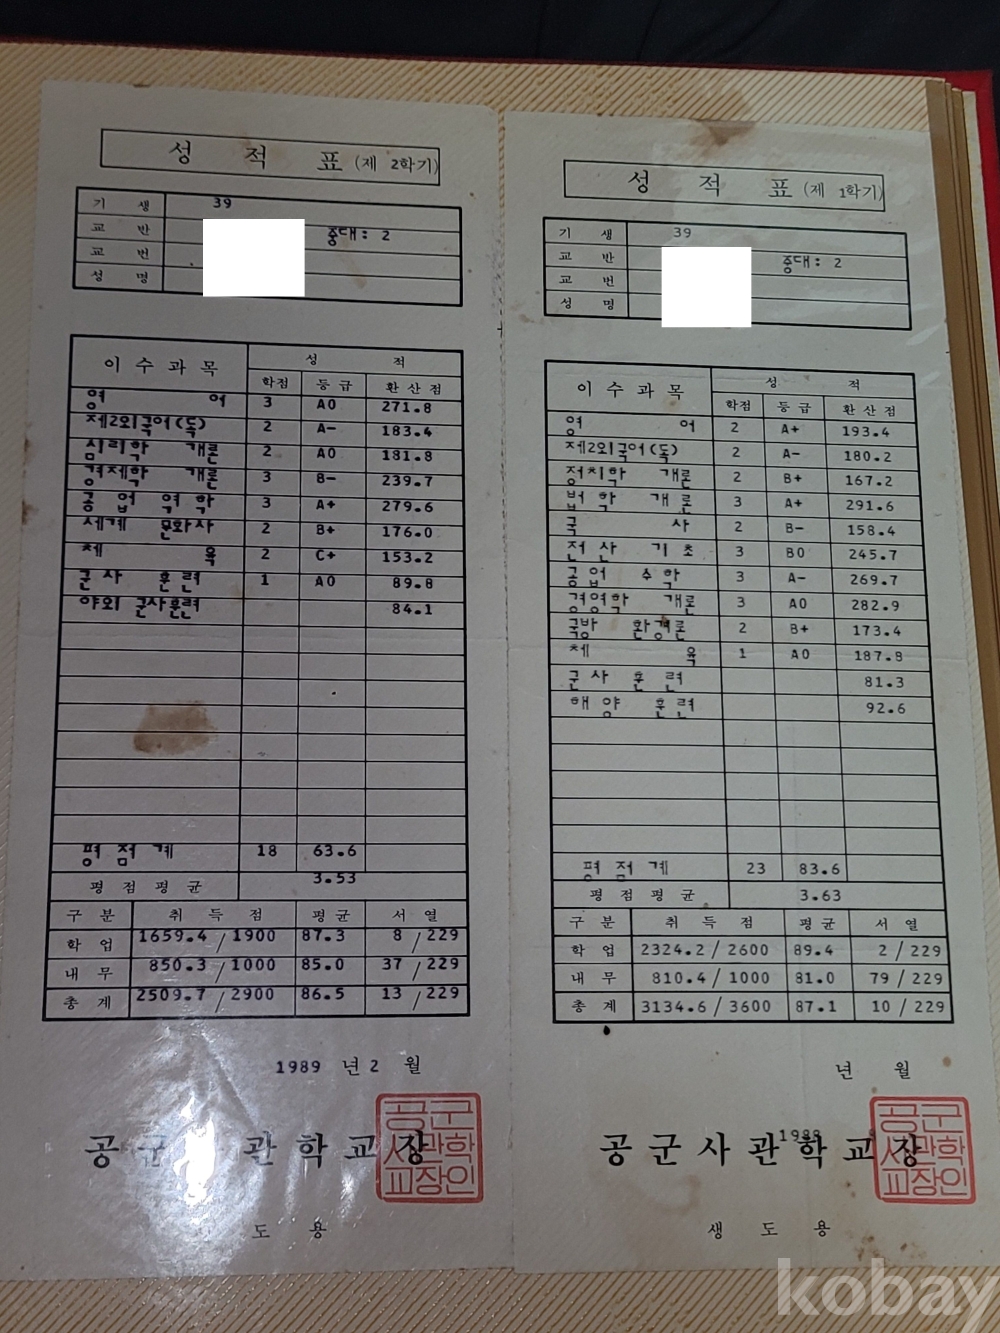 성 적 표 (제 2학기)
기 생 39
교 반 중대: 2
교 번
성 명
이 수 과 목 성 적
학점 등 급 환 산 점
영 어 3 A0 271.8
제2외국어(독) 2 A- 183.4
심리학 개론 2 A0 181.8
경제학 개론 3 B- 239.7
공 업 역 학 3 A+ 279.6
세계 문화사 2 B+ 176.0
체 육 2 C+ 153.2
군 사 훈 련 1 A0 89.8
야외 군사훈련 84.1
평 점 계 18 63.6
평 점 평 균 3.53
구 분 취 득 점 평 균 서 열
학 업 1659.4 / 1900 87.3 8 / 229
내 무 850.3 / 1000 85.0 37 / 229
총 계 2509.7 / 2900 86.5 13 / 229
1989 년 2 월
공 군 관 학 교 장
공군
사관학
교장인
도 용
성 적 표 (제 1학기)
기 생 39
교 반 중대: 2
교 번
성 명
이 수 과 목 성 적
학점 등 급 환 산 점
영 어 2 A+ 193.4
제2외국어(독) 2 A- 180.2
정치학 개론 2 B+ 167.2
법 학 개 론 3 A+ 291.6
국 사 2 B- 158.4
전 산 기 초 3 B0 245.7
공 업 수 학 3 A- 269.7
경영학 개론 3 A0 282.9
국방 환경론 2 B+ 173.4
체 육 1 A0 187.8
군 사 훈 련 81.3
해 양 훈 련 92.6
평 점 계 23 83.6
평 점 평 균 3.63
구 분 취 득 점 평 균 서 열
학 업 2324.2 / 2600 89.4 2 / 229
내 무 810.4 / 1000 81.0 79 / 229
총 계 3134.6 / 3600 87.1 10 / 229
년 월
1988
공 군 사 관 학 교 장
공군
사관학
교장인
생 도 용
kobay